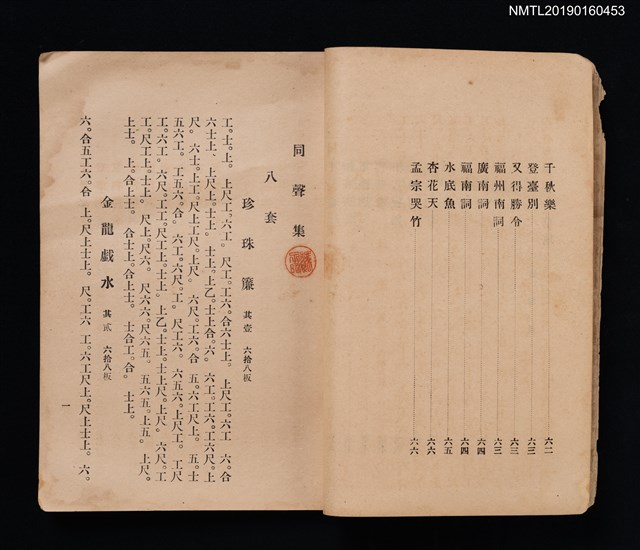 NMTL20190160453
千秋樂 六二
登臺別 六三
又得勝令 六三
福州南詞 六三
廣南詞 六四
福南詞 六四
水底魚 六五
杏花天 六六
孟宗哭竹 六六
同聲集
八套
珍珠簾 其壹 六拾八板
工。士。上。 上尺工。六工。 尺工。工六。合六士上。 上尺工。六工 六。合
六士上、 上尺上。士上。 士上。上乙。士上合。六。 六工。工六。工六尺。上
尺。 六士。上工。尺上工尺。上尺。 六尺。工六。合 五。六工尺上。 五。士
五六工。 工五六。合。 六工。六尺。工。 尺工六。 六五六。上尺工。 工尺
工。六工。 六尺。工工。尺工上。士上。 上乙。士上。士上尺。上尺。 六尺。工
工。尺工上。士上。 尺上。尺六。 尺六六。尺六五。 五六五。上五。 上尺。
上士。 上。合上士。 合士上。合上士。 士合工。合。 士上。
金龍戲水 其貳 六拾八板
六。合五工六。合 上。尺上士上。 尺。工六 工。六工尺上。尺上士上。 六。
一